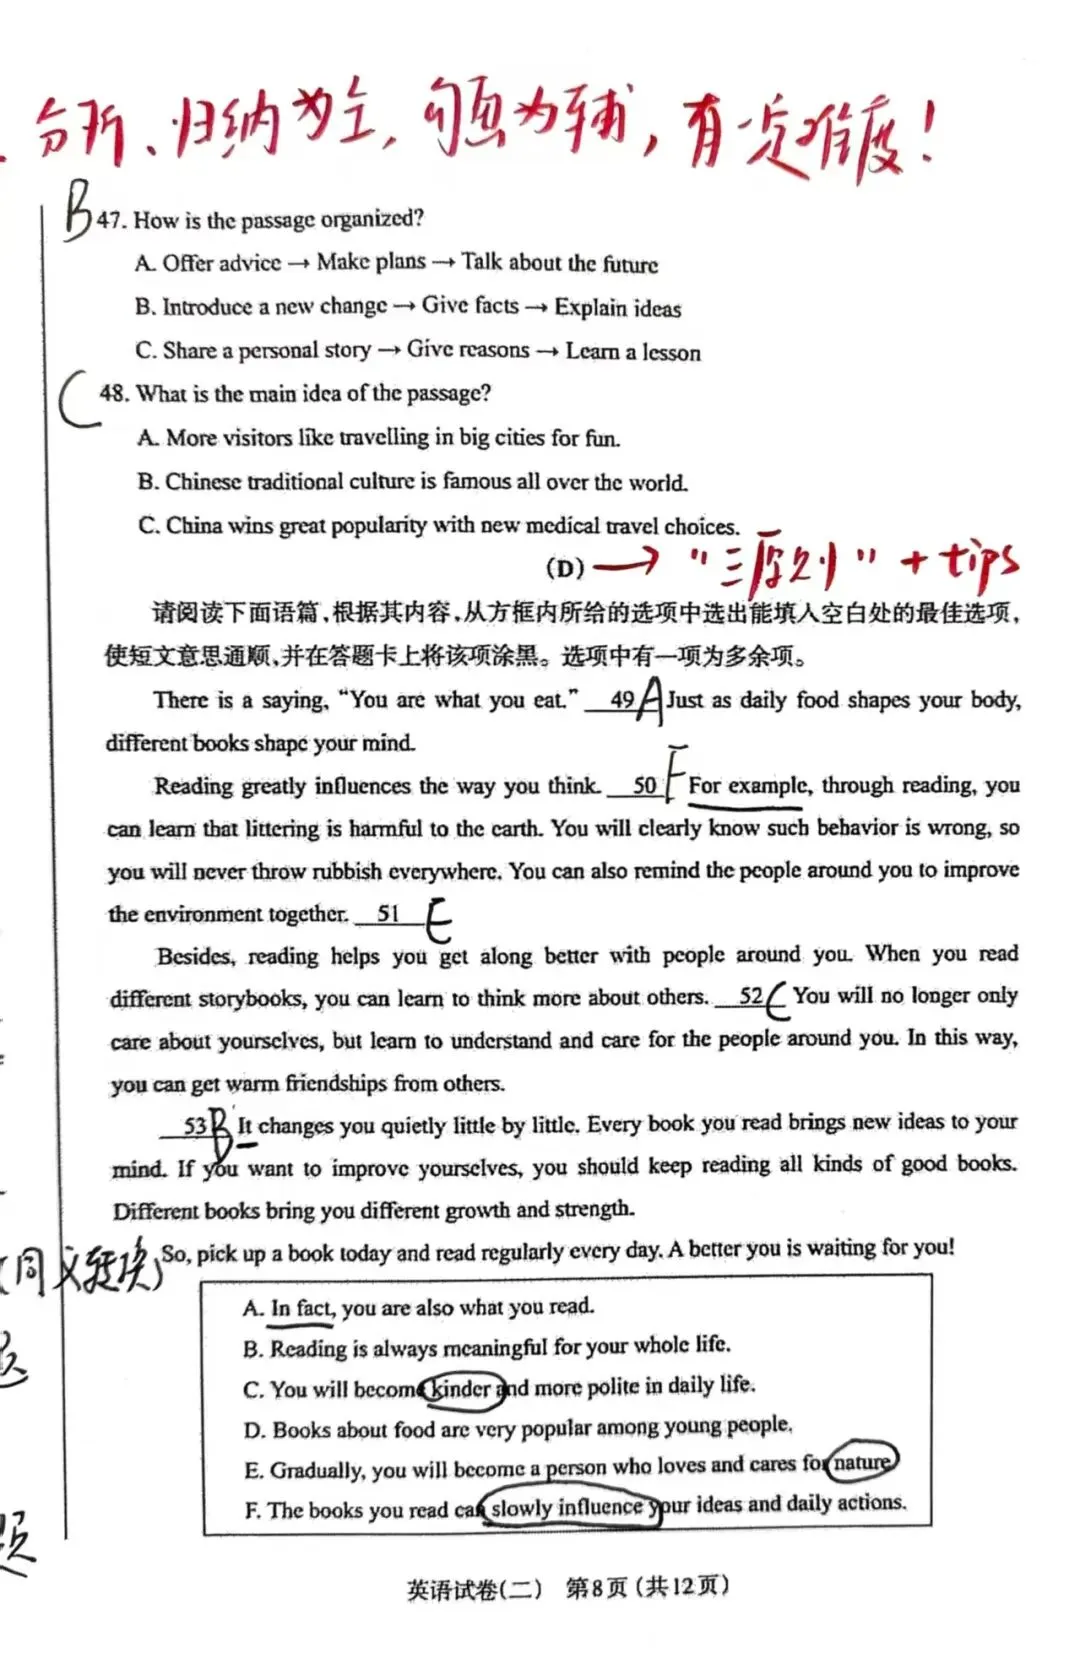 分析、归纳为主，勾画为辅，有一定难度！
B 47. How is the passage organized?
A. Offer advice → Make plans → Talk about the future
B. Introduce a new change → Give facts → Explain ideas
C. Share a personal story → Give reasons → Learn a lesson
C 48. What is the main idea of the passage?
A. More visitors like travelling in big cities for fun.
B. Chinese traditional culture is famous all over the world.
C. China wins great popularity with new medical travel choices.
(D) → "三原则" + tips
请阅读下面语篇，根据其内容，从方框内所给的选项中选出能填入空白处的最佳选项，
使短文意思通顺，并在答题卡上将该项涂黑。选项中有一项为多余项。
There is a saying, “You are what you eat.” 49 A Just as daily food shapes your body,
different books shape your mind.
Reading greatly influences the way you think. 50 F For example, through reading, you
can learn that littering is harmful to the earth. You will clearly know such behavior is wrong, so
you will never throw rubbish everywhere. You can also remind the people around you to improve
the environment together. 51 E
Besides, reading helps you get along better with people around you. When you read
different storybooks, you can learn to think more about others. 52 C You will no longer only
care about yourselves, but learn to understand and care for the people around you. In this way,
you can get warm friendships from others.
53 B It changes you quietly little by little. Every book you read brings new ideas to your
mind. If you want to improve yourselves, you should keep reading all kinds of good books.
Different books bring you different growth and strength.
同义转换
So, pick up a book today and read regularly every day. A better you is waiting for you!
A. In fact, you are also what you read.
B. Reading is always meaningful for your whole life.
C. You will become kinder and more polite in daily life.
D. Books about food are very popular among young people.
E. Gradually, you will become a person who loves and cares for nature.
F. The books you read can slowly influence your ideas and daily actions.
题
英语试卷(二) 第8页(共12页)